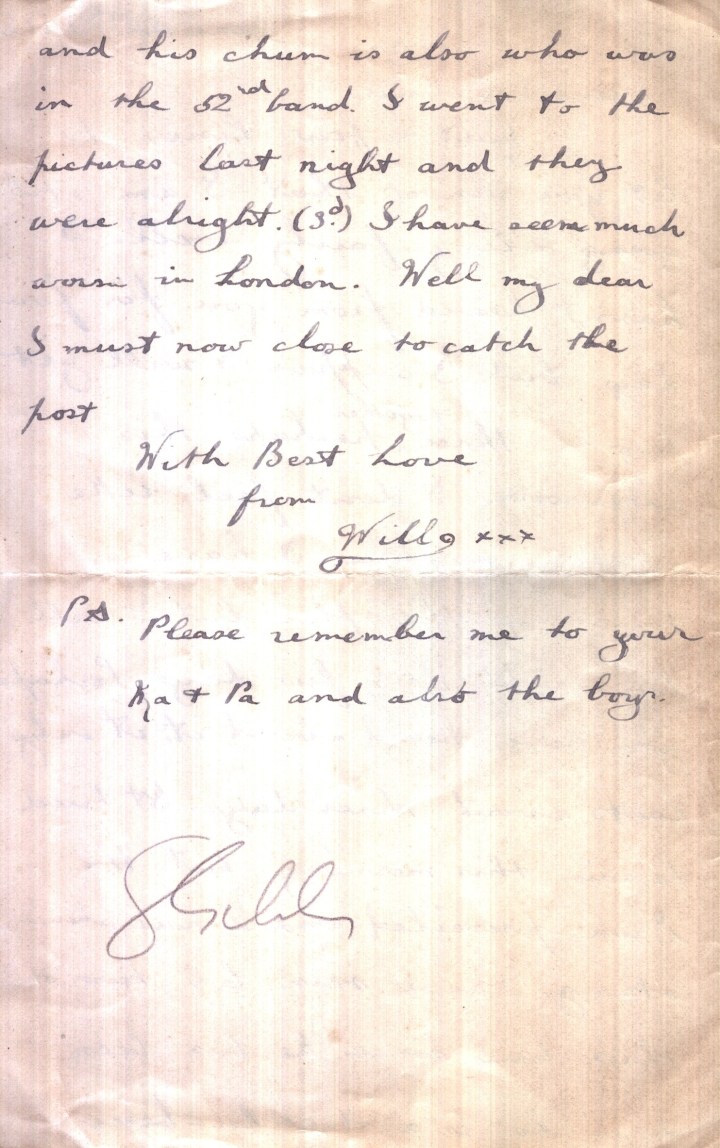 and his chum is also who was
in the 52nd band. I went to the
pictures last night and they
were alright. (3d.) I have seen much
worse in London. Well my dear
I must now close to catch the
post
With Best Love
from
Will xxx
P.S. Please remember me to your
Ma + Pa and also the boys.